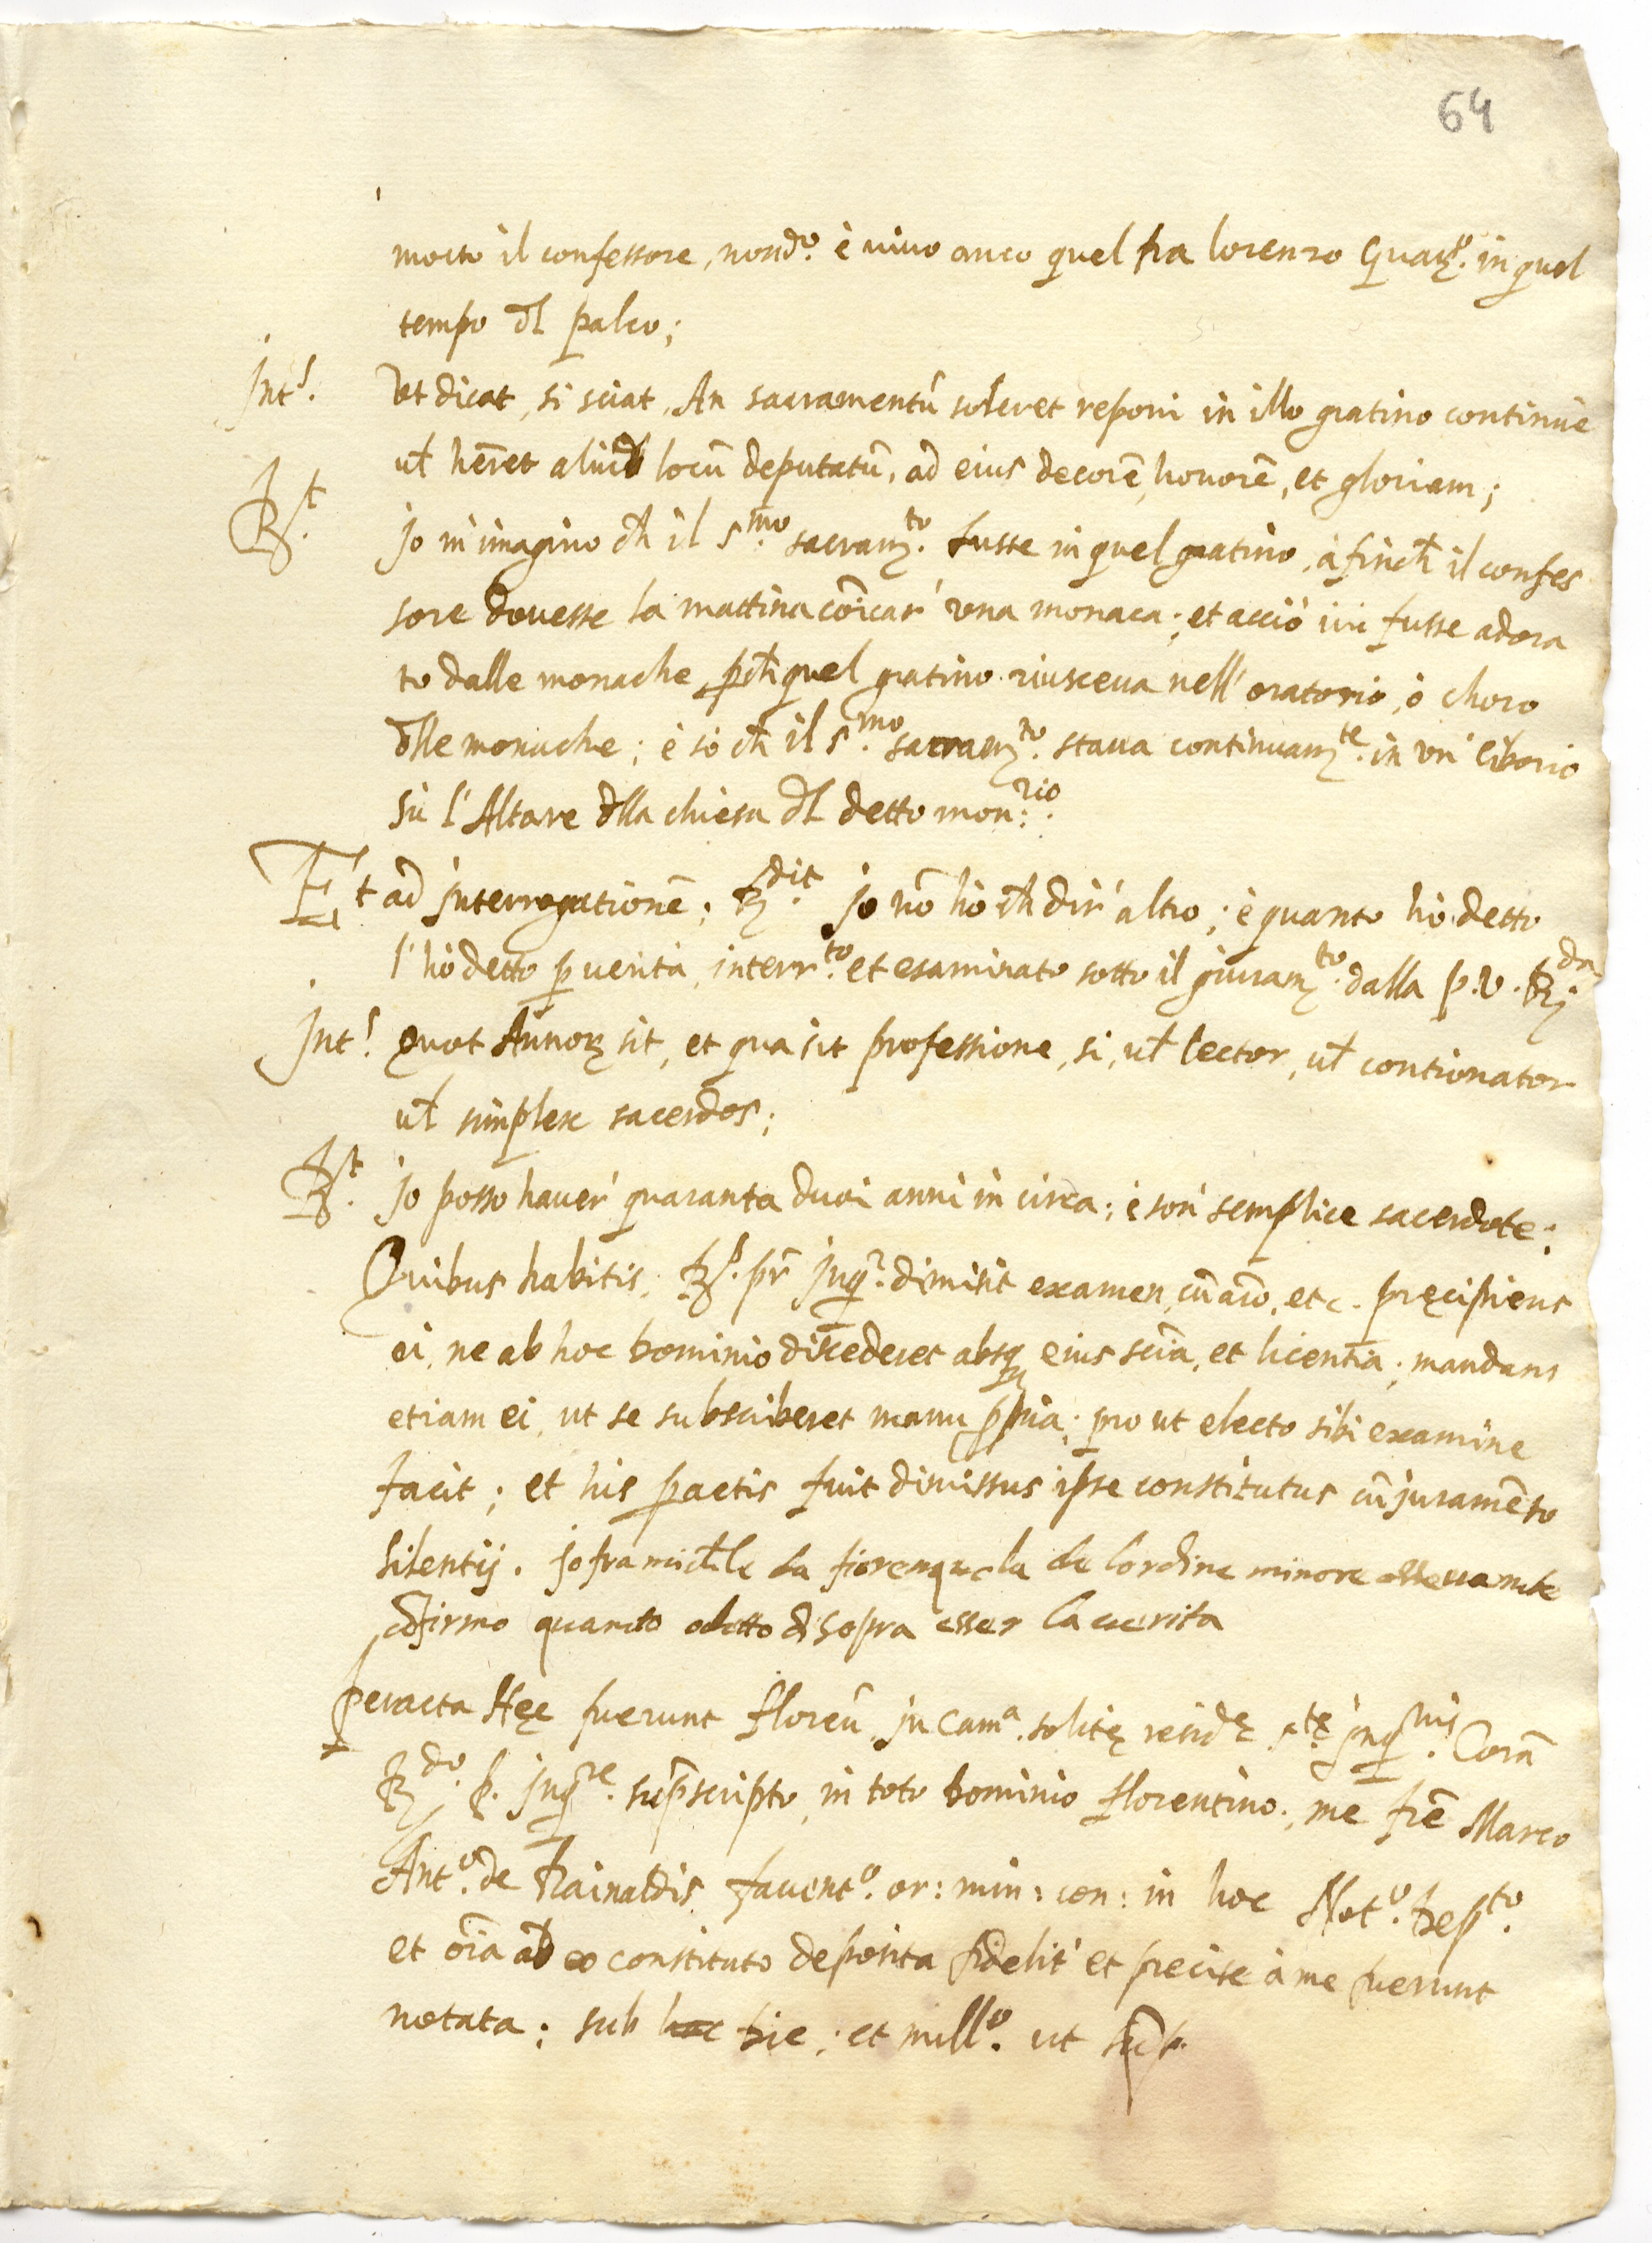 64
morto il confessore, nond.o è vivo anco quel fra lorenzo Guar.o in quel
tempo dl palco;
Int.s Ut dicat, si sciat, An sacramentũ soleret reponi in illo gratino continue
ul̃ hẽret aliud locũ deputatũ, ad eius decorẽ, honorẽ, et gloriam;
R.t Jo m'imagino ch̃ il S.mo sacram.to fusse in quel gratino, à finch̃ il confes
sore douesse la mattina cõicar' una monaca; et acciò iui fusse adora
to dalle monache, p̃ch̃ quel gratino riusceua nell'oratorio, ò choro
dlle monache; è sò ch̃ il S.mo sacram.to staua continuam.te in un' ciborio
sù l'Altare dlla chiesa dl detto mon:rio.
Et ad interrogationẽ; R.dit Jo nõ hò ch̃ dir' altro; è quanto hò detto
l'hò detto p uerità, interr.to et esaminato sotto il giuram.to dalla p. v. R.da
Int.s Quot Annorȝ sit, et qua sit professione, si, ul̃ lector, ul̃ contionator
ul̃ simplex sacerdos;
R.t Jo posso hauer' quaranta duoi anni in circa; è son' semplice sacerdote;
Quibus habitis, R.s pr̃ Inq.r dimisit examen, cũ aĩo, etc. pręcipiens
ei, ne ab hoc Dominio discederet absq eius sciã, et licentia; mandans
etiam ei, ut se subscriberet manu ppria; pro ut electo sibi examine
facit; et his pactis fuit dimissus ipse constitutus cũ juramẽto
silentij. Jo fra michele da fiorenzuola de lordine minore osseruante
cõfirmo quanto o detto di sopra esser la uerita
Peracta Hęc fuerunt florẽ, in Cam.a solitę resid.ę s.tę Inq.nis Corã
R.do P. Inq.re sup̃scripto, in toto Dominio florentino; me frẽ Marco
Ant.o de Rainaldis fauent.o or: min: con: in hoc Not.o Dep.to
et oĩa ab eo constituto deposita fidelit' et precise à me fuerunt
notata; sub hac die; et mill.o ut sup.